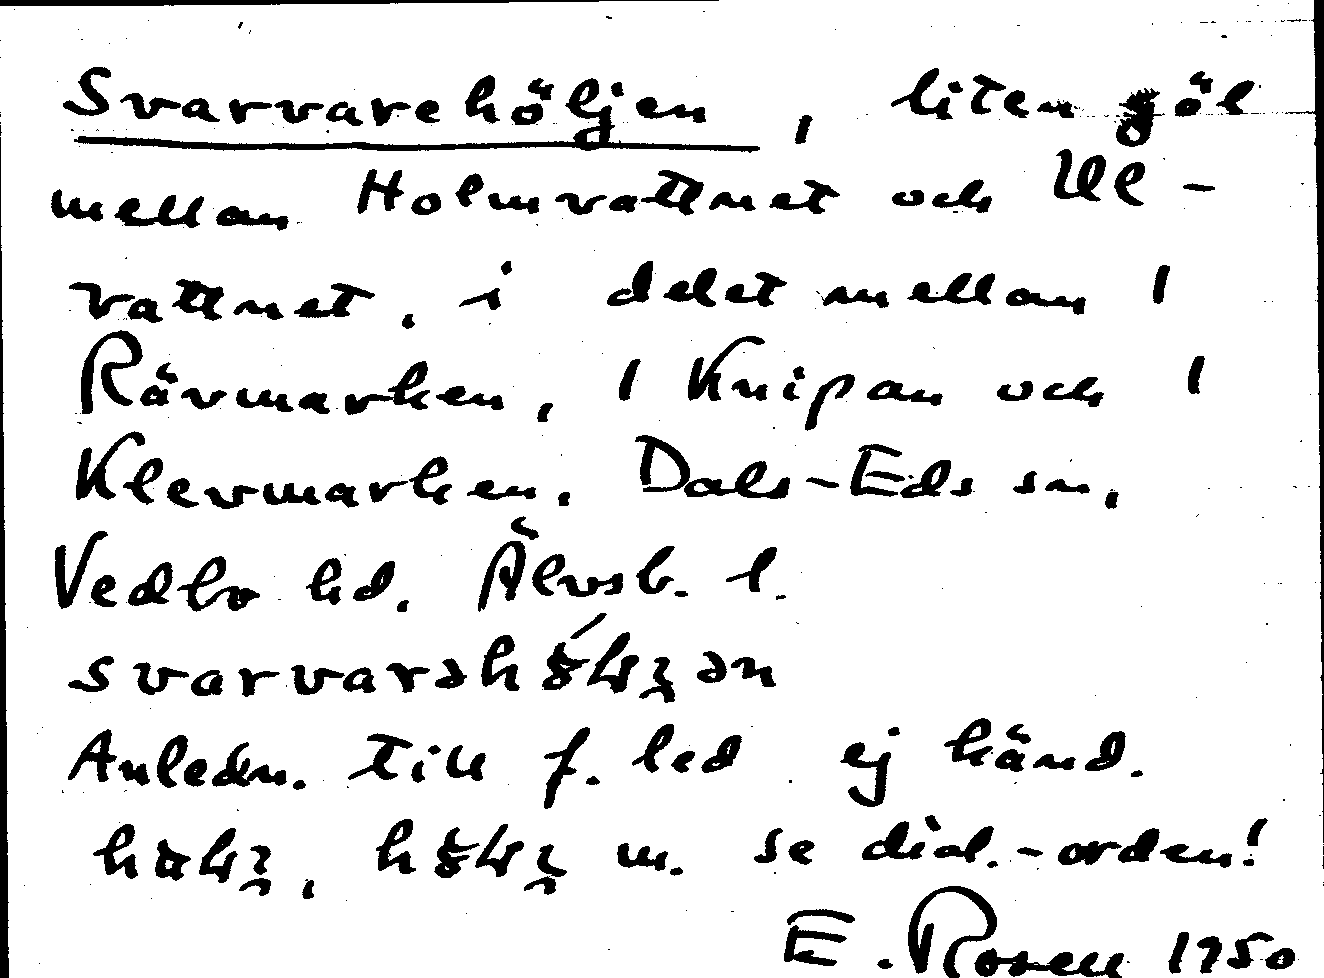 Svarvarehöljen, liten göl
mellan Holmvattnet och Ul-
vattnet, i delet mellan 1
Rävmarken, 1 Knipan och 1
Klevmarken. Dals-Eds sn,
Vedbo hd. Älvsb. l.
Anledn. till f. led ej känd.
m. se dial.-orden!
E. Rosen 1950